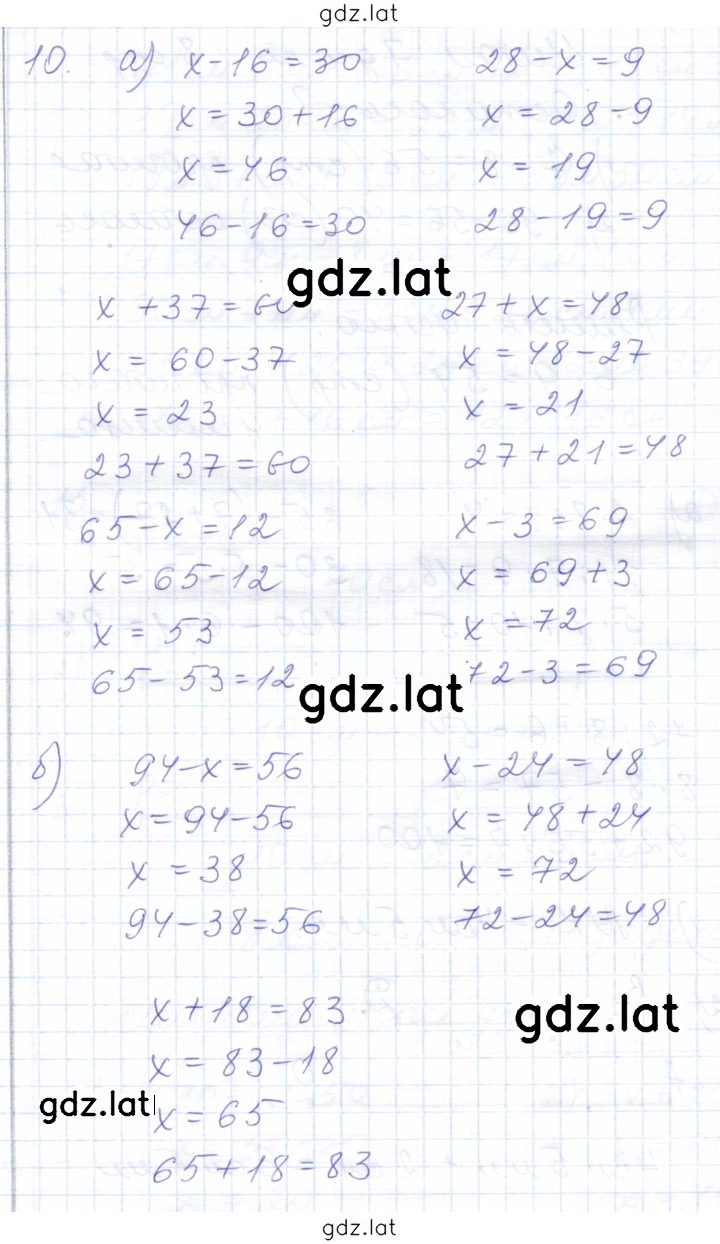 gdz.lat
10. а) x - 16 = 30 28 - x = 9
x = 30 + 16 x = 28 - 9
x = 46 x = 19
46 - 16 = 30 28 - 19 = 9
gdz.lat
x + 37 = 60 27 + x = 48
x = 60 - 37 x = 48 - 27
x = 23 x = 21
23 + 37 = 60 27 + 21 = 48
65 - x = 12 x - 3 = 69
x = 65 - 12 x = 69 + 3
x = 53 x = 72
65 - 53 = 12 72 - 3 = 69
gdz.lat
б) 94 - x = 56 x - 24 = 48
x = 94 - 56 x = 48 + 24
x = 38 x = 72
94 - 38 = 56 72 - 24 = 48
x + 18 = 83
gdz.lat
x = 83 - 18
gdz.lat x = 65
65 + 18 = 83
gdz.lat